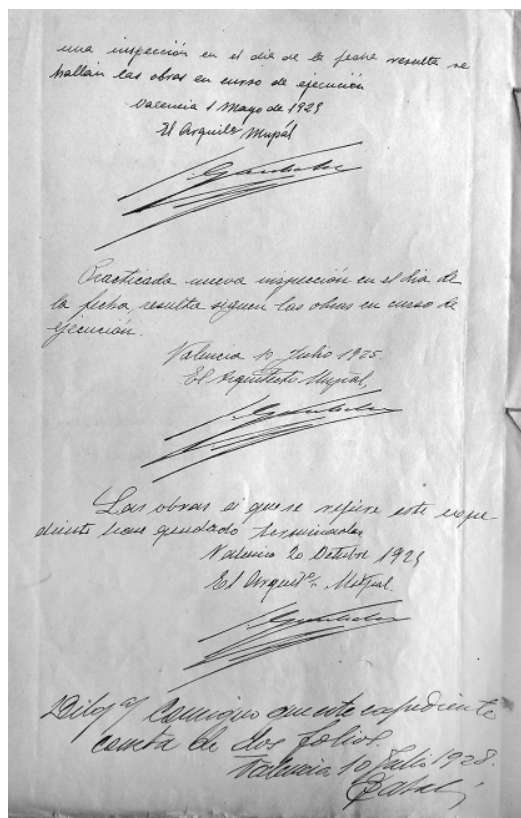 una inspección en el dia de la fecha resulta se
hallan las obras en curso de ejecución
Valencia 1 Mayo de 1925
El Arquito Mupál
Practicada nueva inspección en el dia de
la fecha, resulta siguen las obras en curso de
ejecución.
Valencia 10 Julio 1925.
El Arquitecto Mupál,
Las obras a que se refiere este expe-
diente han quedado terminadas
Valencia 20 Octubre 1925
El Arquitº. Mupal.
Consigno que este expediente
consta de dos folios.
Valencia 10 Julio 1928.